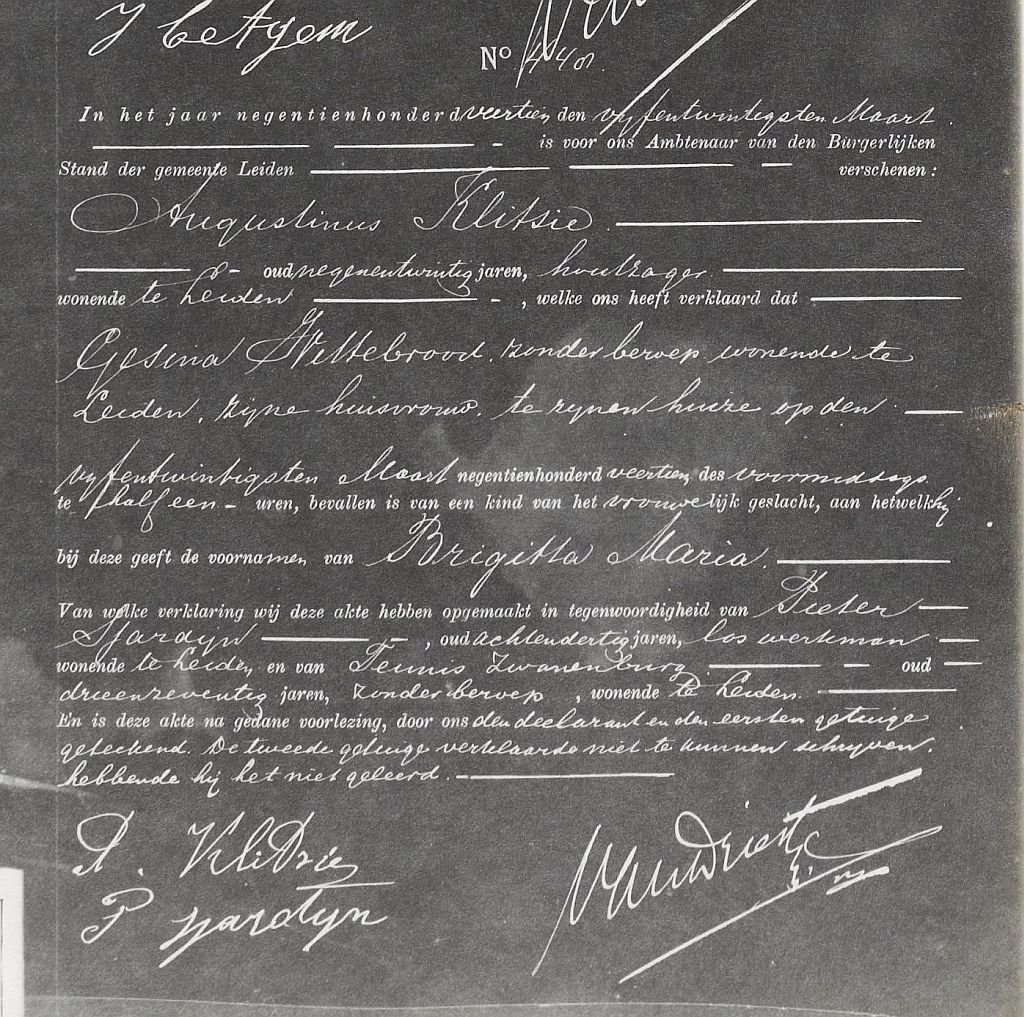 No 440.
In het jaar negentienhonderd veertien den vyfentwintigsten Maart.
is voor ons Ambtenaar van den Burgerlijken
Stand der gemeente Leiden verschenen:
Augustinus Klitsie
oud negenentwintig jaren, houtzager.
wonende te Leiden, welke ons heeft verklaard dat
Gesina Wittebrood, zonder beroep, wonende te
Leiden, zijne huisvrouw, te zynen huize op den
vyfentwintigsten Maart negentienhonderd veertien, des voormiddags
te half een uren, bevallen is van een kind van het vrouwelijk geslacht, aan hetwelk hij
bij deze geeft de voornamen van Brigitta Maria.
Van welke verklaring wij deze akte hebben opgemaakt in tegenwoordigheid van Pieter
Sjardyn, oud achtendertig jaren, los werkman
wonende te Leiden, en van Teunis Zwanenburg oud
drieenzeventig jaren, zonder beroep, wonende te Leiden.
En is deze akte na gedane voorlezing, door ons den declarant en den eersten getuige
geteekend. De tweede getuige verklaarde niet te kunnen schryven,
hebbende hij het niet geleerd.
A. Klitsie
P Sjardyn